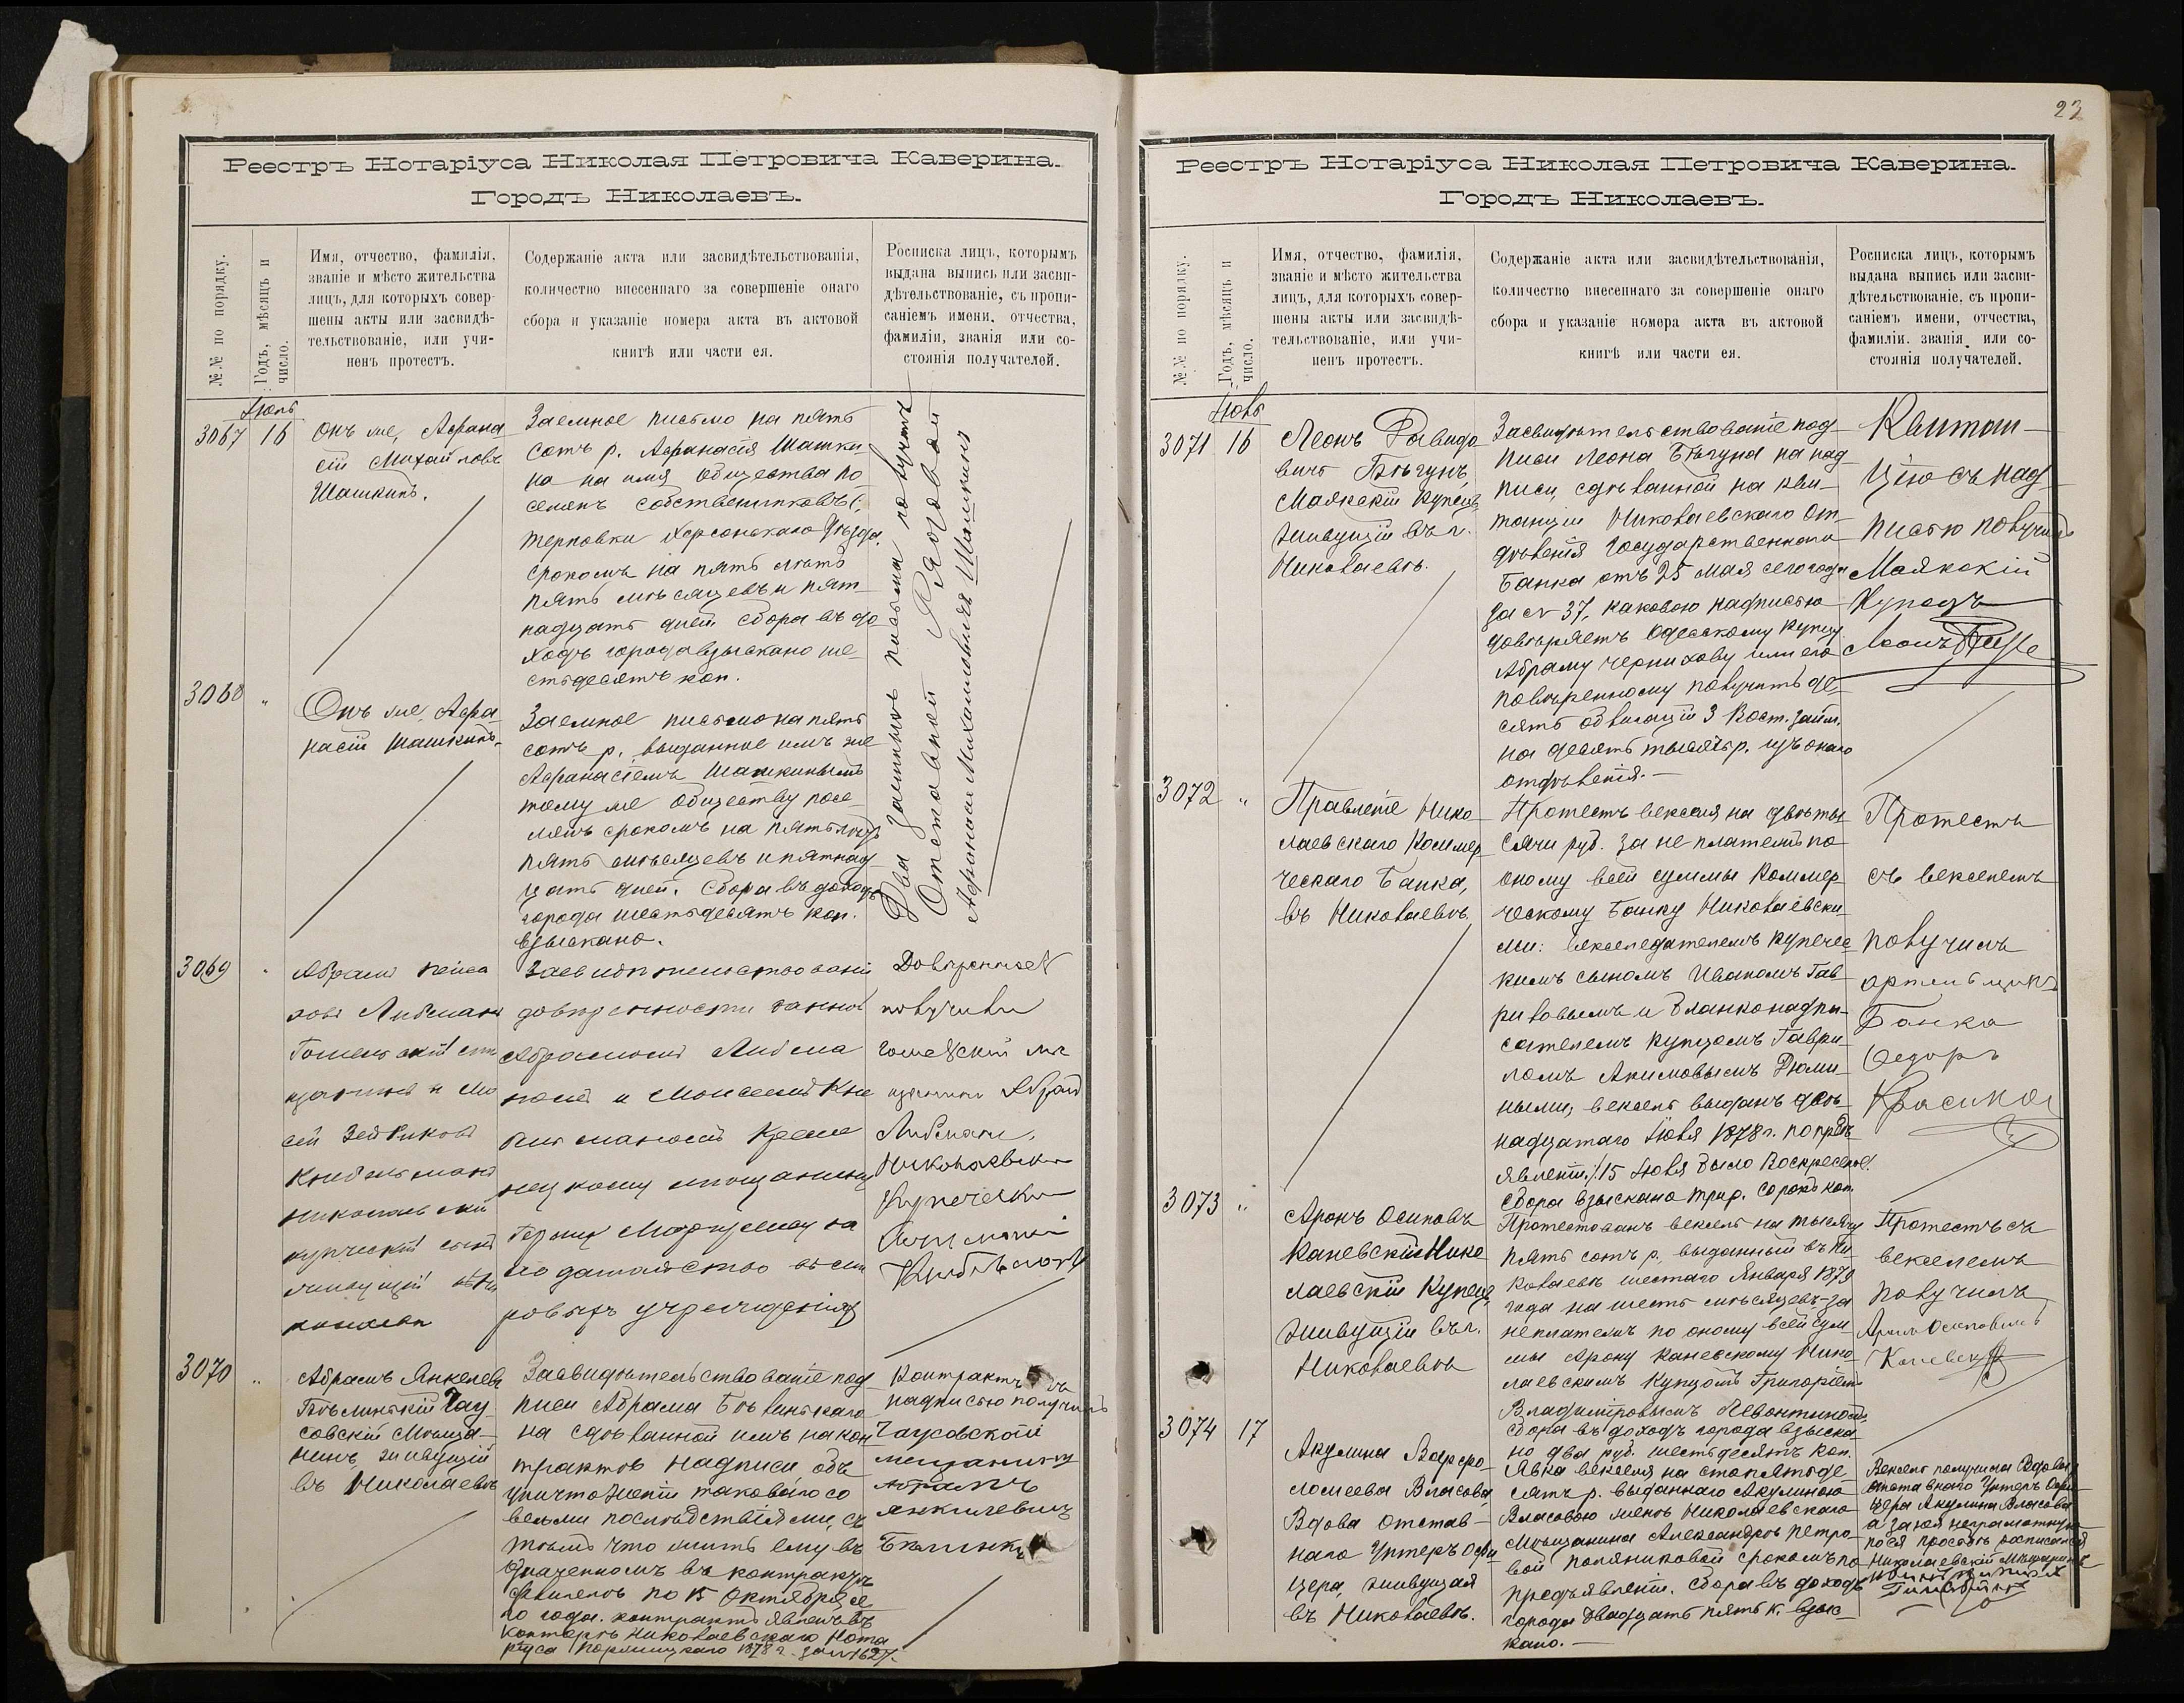 Реестръ Нотаріуса Николая Петровича Каверина.
Городъ Николаевъ.
№№ по порядку.
Годъ, мѣсяцъ и
число.
Имя, отчество, фамилія,
званіе и мѣсто жительства
лицъ, для которыхъ совер-
шены акты или засвидѣ-
тельствованіе, или учи-
ненъ протестъ.
Содержаніе акта или засвидѣтельствованія,
количество внесеннаго за совершеніе онаго
сбора и указаніе номера акта въ актовой
книгѣ или части ея.
Росписка лицъ, которымъ
выдана выпись или засви-
дѣтельствованіе, съ пропи-
саніемъ имени, отчества,
фамиліи, званія или со-
стоянія получателей.
3067
16
Онъ же, Афана
сій Михайловъ
Шашкинъ.
Заемное письмо на пять
сотъ р. Афанасія Шашки
на на имя Общества по
селянъ собственниковъ с.
терновки Херсонскаго Уѣзда,
срокомъ на пять лѣтъ
пять мѣсяцевъ и пят
надцать дней. Сбора въ до
ходъ города взыскано ше
стьдесятъ коп.
Два заемныхъ письма получилъ
Отставной
Афанасій Михайловичъ Шашкинъ
3068
"
Онъ же, Афа
насій Шашкинъ.
Заемное письмо на пять
сотъ р., выданное имъ же
Афанасіемъ Шашкинымъ
тому же Обществу посе
лянъ срокомъ на пять лѣтъ
пять мѣсяцевъ и пятнад
цать дней. Сбора въ доходъ
города шестьдесятъ коп.
взыскано.
3069
"
Абрамъ
Либманъ
и Мо
сей
купческій сынъ
живущій въ Ни
колаевѣ
Засвидѣтельствованіе
довѣренности данной
Абрамомъ Либма
номъ и Моисеемъ Кни
мѣщанину
на
ходатайство въ ми
ровыхъ учрежденіяхъ
Довѣренность
получили
мѣ
щанинъ Абрамъ
Либманъ,
Николаевскій
Купеческій
3070
"
Абрамъ Янкелевъ
Бѣлинскій Чау
совскій Мѣща
нинъ, живущій
въ Николаевѣ
Засвидѣтельствованіе под
писи Абрама Бѣлинскаго
на сдѣланной имъ на кон
трактѣ надписи объ
уничтоженіи таковаго со
всѣми послѣдствіями, съ
тѣмъ что жить ему въ
означенномъ въ контрактѣ
по 15 Октября се
го года. контрактъ явленъ въ
конторѣ Николаевскаго Нота
ріуса 1878 г. за № 1627.
Контрактъ съ
надписью получилъ
Чаусовской
мещанинъ
Абрамъ
Янкилевичъ
23
Реестръ Нотаріуса Николая Петровича Каверина.
Городъ Николаевъ.
№№ по порядку.
Годъ, мѣсяцъ и
число.
Имя, отчество, фамилія,
званіе и мѣсто жительства
лицъ, для которыхъ совер-
шены акты или засвидѣ-
тельствованіе, или учи-
ненъ протестъ.
Содержаніе акта или засвидѣтельствованія,
количество внесеннаго за совершеніе онаго
сбора и указаніе номера акта въ актовой
книгѣ или части ея.
Росписка лицъ, которымъ
выдана выпись или засви-
дѣтельствованіе, съ пропи-
саніемъ имени, отчества,
фамиліи, званія или со-
стоянія получателей.
3071
16
Леонъ Давидо
вичъ Бѣгунъ,
Маякскій Купецъ
живущій въ г.
Николаевѣ.
Засвидѣтельствованіе под
писи Леона Бѣгуна на над
писи, сдѣланной на кви
танціи Николаевскаго От
дѣленія Государственнаго
Банка отъ 25 Мая сего года
за № 37, каковою надписью
довѣряетъ Одесскому Купцу
Абраму Чернихову или его
повѣренному получить де
сять облигацій 3 Вост. займ.
на десять тысячъ р. изъ онаго
отдѣленія.
Квитан
цію съ над
писью получилъ
Маякскій
Купецъ
3072
"
Правленіе Нико
лаевскаго Коммер
ческаго Банка,
въ Николаевѣ.
Протестъ векселя на двѣ ты
сячи руб. за не платежъ по
оному всей суммы Коммер
ческому Банку Николаевски
ми: векселедателемъ купечес
кимъ сыномъ Иваномъ Гав
риловымъ и бланконадпи
сателемъ купцомъ Гаври
ломъ Акимовымъ Дюми
ными; вексель выданъ двѣ
надцатаго Іюля 1878 г. по предъ
явленіи. 15 Іюля было Воскресенье.
Сбора взыскано три р. сорокъ коп.
Протестъ
съ векселемъ
получилъ
артельщикъ
Банка
Федоръ
3073
"
Аронъ Осиповъ
Каневскій Нико
лаевскій Купецъ,
живущій въ г.
Николаевѣ
Протестованъ вексель на тысячу
пять сотъ р., выданный въ Ни
колаевѣ шестаго Января 1879
года на шесть мѣсяцевъ за
неплатежъ по оному всей сум
мы Арону Каневскому Нико
лаевскимъ Купцомъ Григоріемъ
Владиміровымъ
Сбора въ доходъ города взыска
но два руб. шестьдесятъ коп.
Протестъ съ
векселемъ
получилъ
Аронъ Осиповичъ
Каневскій
3074
17
Акулина Варфо
ломеева Власова,
Вдова Отстав
наго Унтеръ Офи
цера, живущая
въ Николаевѣ.
Явка векселя на сто пятьде
сятъ р. выданнаго Акулиною
Власовою женѣ Николаевскаго
Мѣщанина Александрѣ Петро
вой срокомъ по
предъявленіи. Сбора въ доходъ
города двадцать пять к. взыс
кано.
Вексель получила Вдова
отставного Унтеръ Офи
цера Акулина Власова
а за нея неграмотную
по ея просьбѣ росписался
Николаевскій Мѣщанинъ